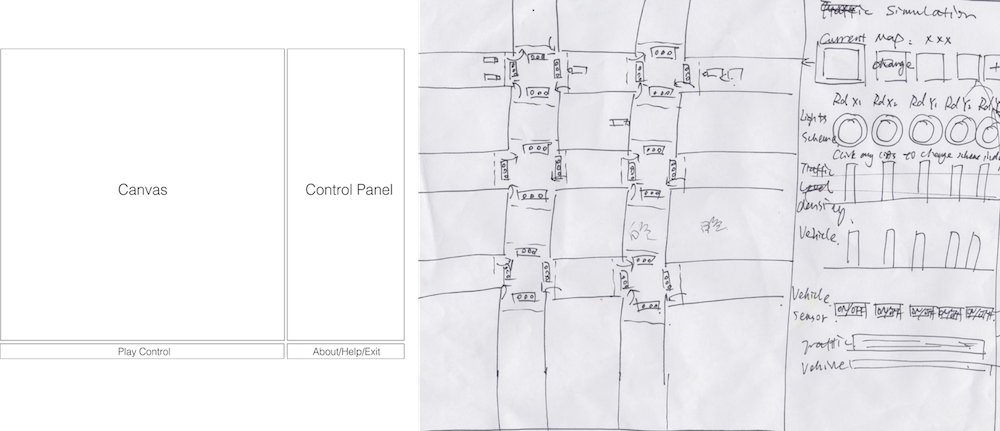 Canvas
Control Panel
Play Control
About/Help/Exit
Traffic Simulation
Current Map: xxx
change
+
Rd X1 Rd X2 Rd Y1 Rd Y2 Rd
Lights
Scheme
to change
Traffic
Level
density
Vehicle
Vehicle
sensor
ON/OFF ON/OFF ON/OFF ON/OFF ON/OFF
Traffic
Vehicle